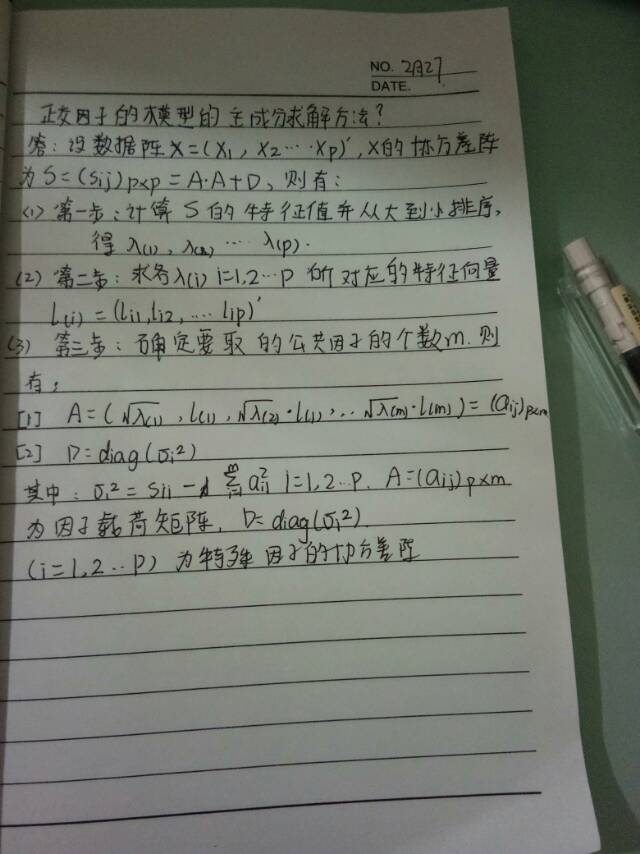 NO. 2月27
DATE.
正交因子的模型的主成分求解方法?
答:设数据阵X=(X1, X2…Xp)′, X的协方差阵
为S=(Sij)p×p=A·A+D, 则有:
(1) 第一步:计算S的特征值并从大到小排序,
得λ(1), λ(2)…λ(p).
(2) 第二步:求各λ(i) i=1,2…p 所对应的特征向量
L(i)=(li1,li2,…lip)′
(3) 第三步:确定要取的公共因子的个数m.则
有:
[1] A=(√λ(1), l(1), √λ(2)·l(2),…√λ(m)·l(m))=(aij)p×m
[2] D=diag(σi²)
其中:σi²=Sii-∑aij² i=1,2…p. A=(aij)p×m
为因子载荷矩阵, D=diag(σi²)
(i=1,2…p) 为特殊因子的协方差阵